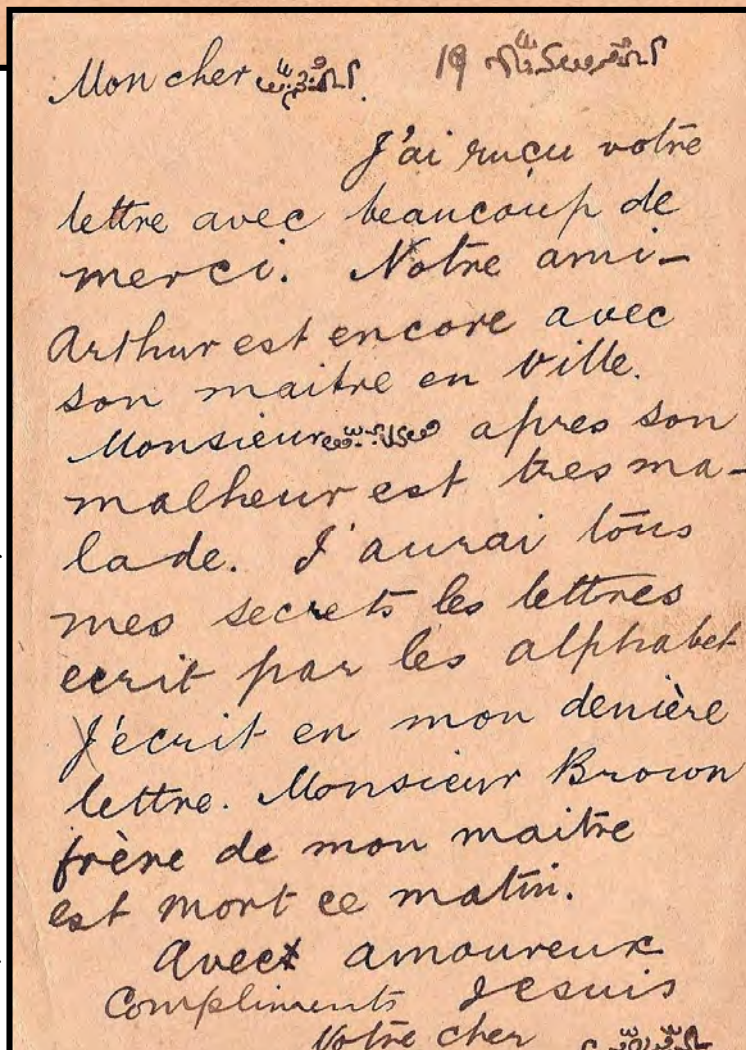 Mon cher 19
J'ai ruçu votre
lettre avec beaucoup de
merci. Notre ami-
Arthur est encore avec
son maitre en ville.
Monsieur apres son
malheur est tres ma-
lade. J'aurai tous
mes secrets les lettres
ecrit par les alphabet
J'écrit en mon denière
lettre. Monsieur Brown
frère de mon maitre
est mort ce matin.
Avec amoureux
Compliments Je suis
Votre cher